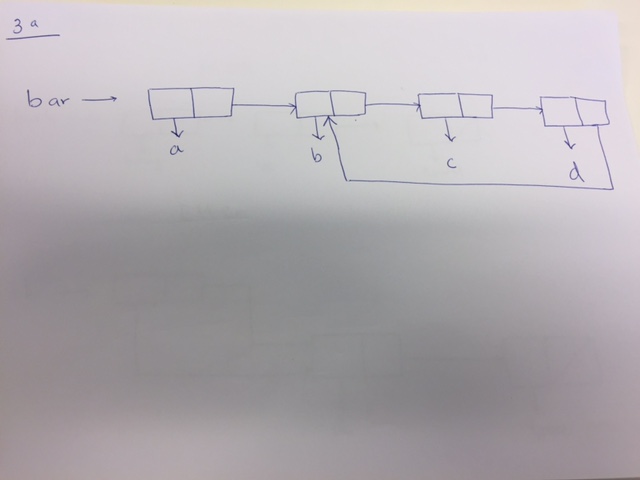 3a
bar
a
b
c
d